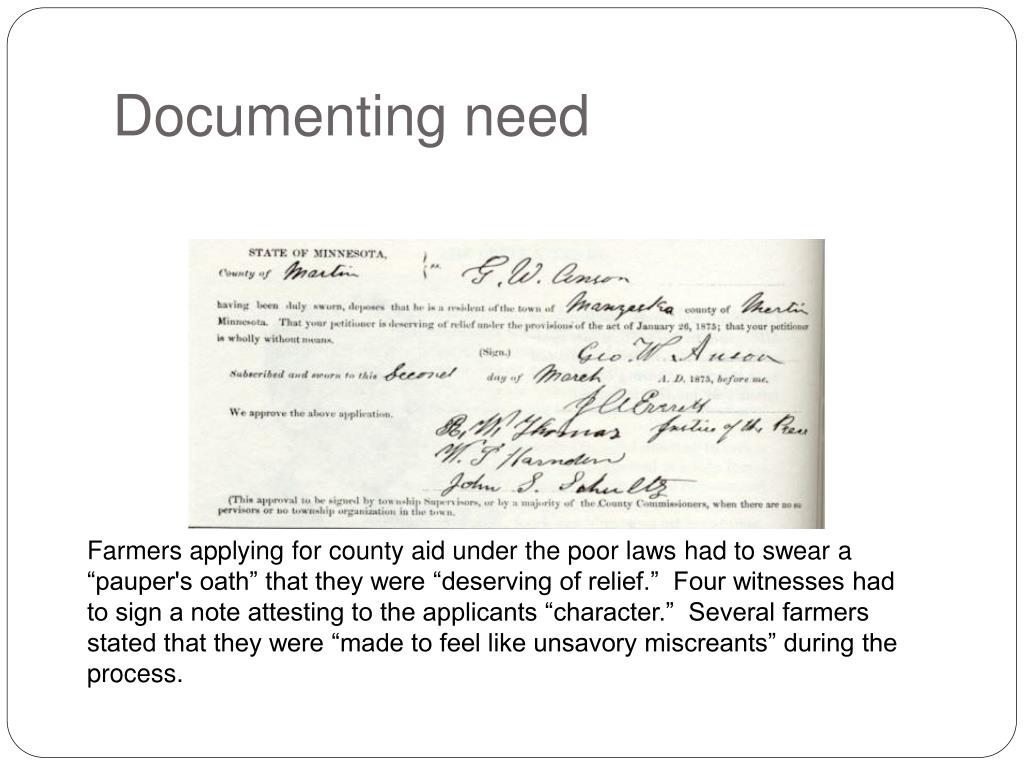 Documenting need
STATE OF MINNESOTA,
County of Martin } ss. G. W. Anson
having been duly sworn, deposes that he is a resident of the town of Manyeska county of Martin
Minnesota. That your petitioner is deserving of relief under the provisions of the act of January 26, 1875; that your petitioner
is wholly without means.
(Sign.) Geo. W. Anson
Subscribed and sworn to this Second day of March A. D. 1875, before me.
J A Everett
We approve the above application. R. W. Thomas Justice of the Peace
W. T Harnden
John S. Schultz
(This approval to be signed by township Supervisors, or by a majority of the County Commissioners, when there are no su
pervisors or no township organization in the town.
Farmers applying for county aid under the poor laws had to swear a
“pauper's oath” that they were “deserving of relief.” Four witnesses had
to sign a note attesting to the applicants “character.” Several farmers
stated that they were “made to feel like unsavory miscreants” during the
process.